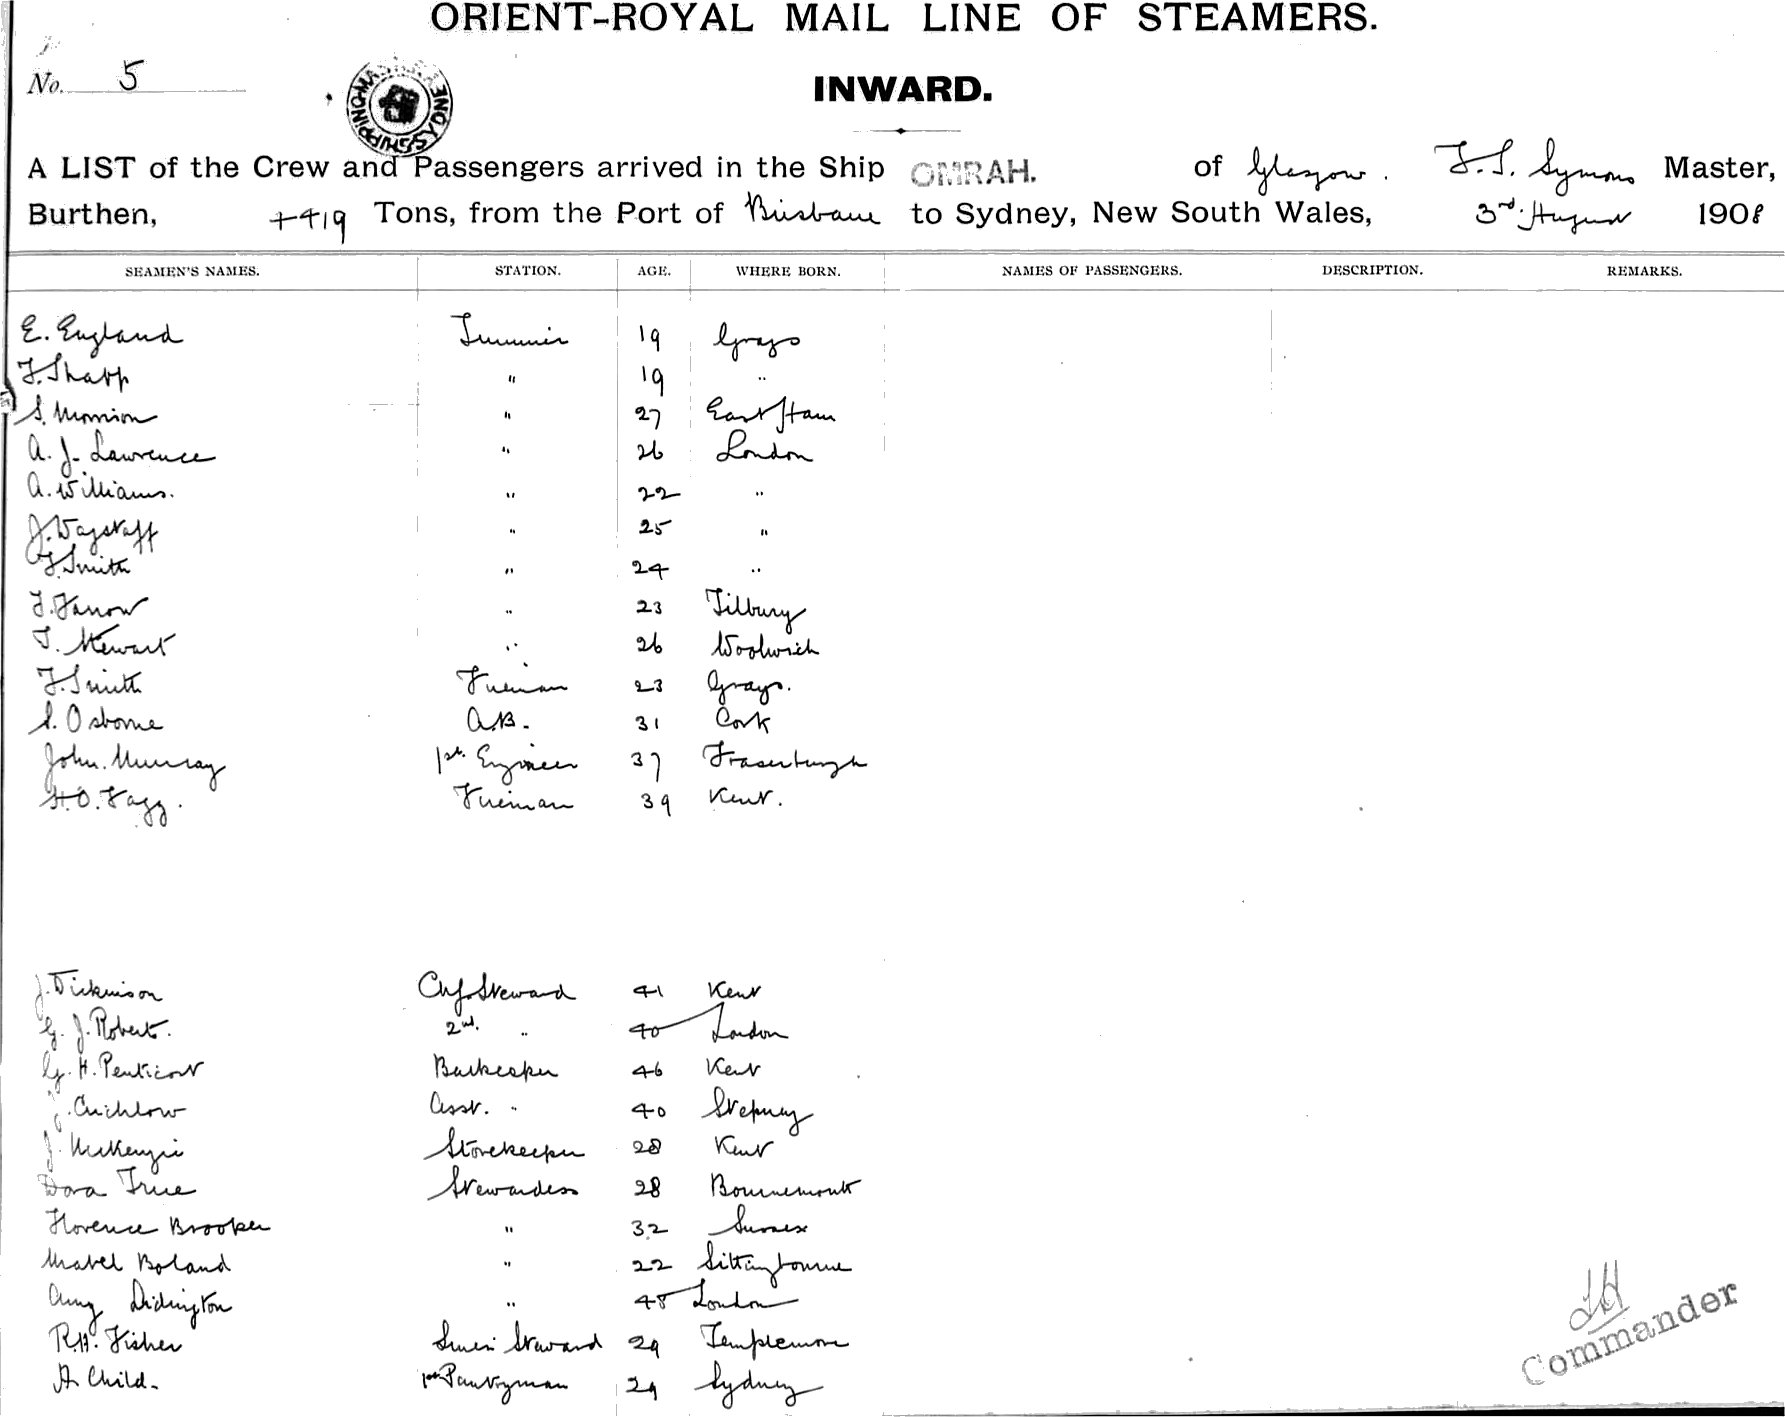 ORIENT-ROYAL MAIL LINE OF STEAMERS.
No. 5
INWARD.
A LIST of the Crew and Passengers arrived in the Ship OMRAH. of Glasgow. Symons Master,
Burthen, 4419 Tons, from the Port of Brisbane to Sydney, New South Wales, 3rd. August 1908
SEAMEN'S NAMES. STATION. AGE. WHERE BORN. NAMES OF PASSENGERS. DESCRIPTION. REMARKS.
E. England Trimmer 19 Grays
F. Sharp " 19 "
S. Morrison " 27 East Ham
A. J. Lawrence " 26 London
A. Williams. " 22 "
J. Wagstaff " 25 "
F. Smith " 24 "
J. Farrow " 23 Tilbury
T. Stewart " 26 Woolwich
F. Smith Fireman 23 Grays.
S. Osborne A.B. 31 Cork
John Murray 1st. Engineer 37 Fraserburgh
H.O. Fagg. Fireman 39 Kent.
J. Dickinson Chf. Steward 41 Kent
G. J. Roberts. 2nd. " 40 London
G. H. Penticost Barkeeper 46 Kent
J. Crichlow Asst. " 40 Stepney
J. McKenzie Storekeeper 28 Kent
Dora True Stewardess 28 Bournemouth
Florence Brooker " 32 Sussex
Mabel Boland " 22 Sittingbourne
Amy Didington " 48 London
R.H. Fisher Steward 29 Templemore
A. Child. 1st Pantryman 29 Sydney
Commander